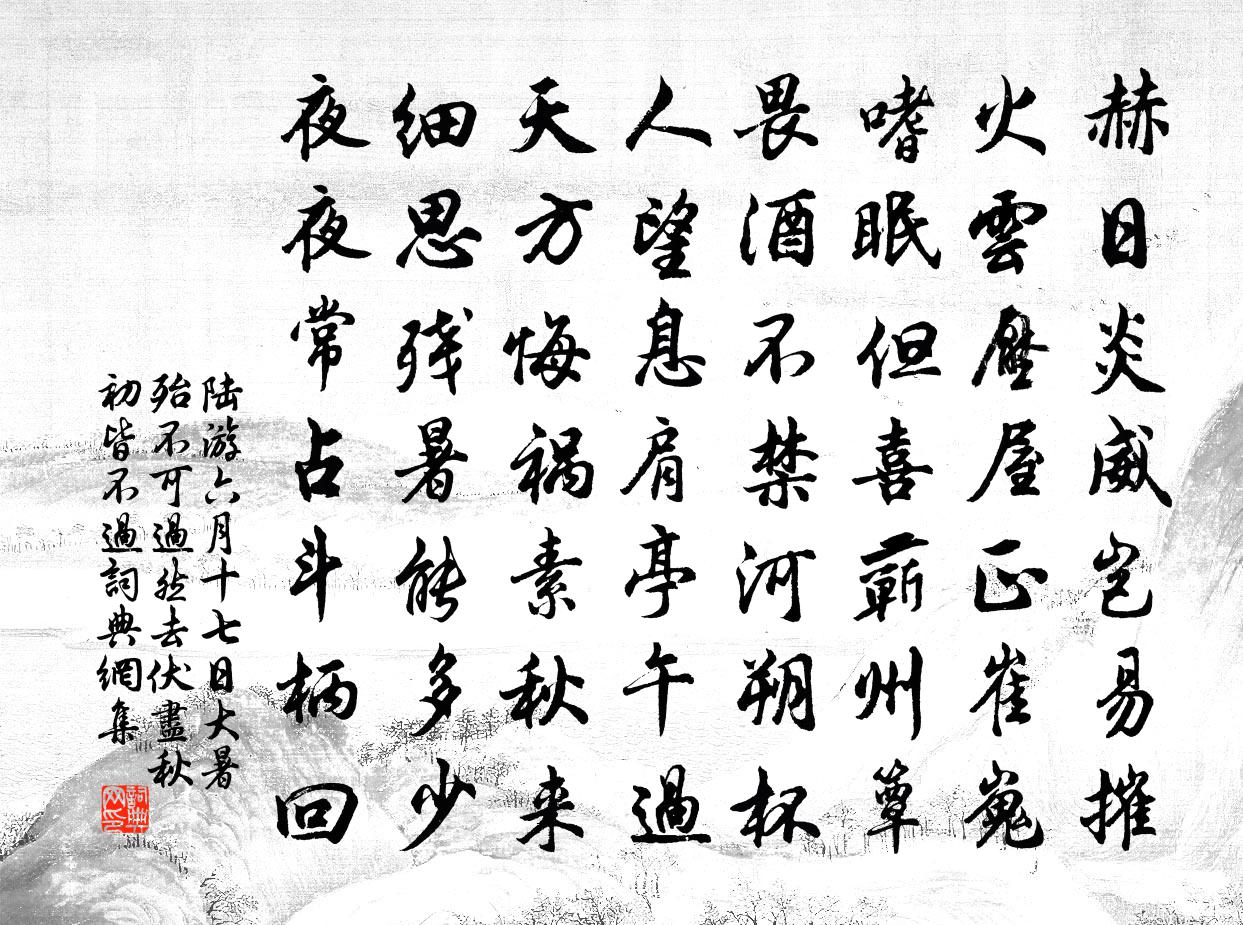 赫日炎威岂易摧
火雲壓屋正崔嵬
嗜眠但喜蘄州簟
畏酒不禁河朔杯
人望息肩亭午過
天方悔祸素秋来
细思残暑能多少
夜夜常占斗柄回
陆游六月十七日大暑
殆不可過然去伏盡秋
初皆不過詞典網集
詞典网印